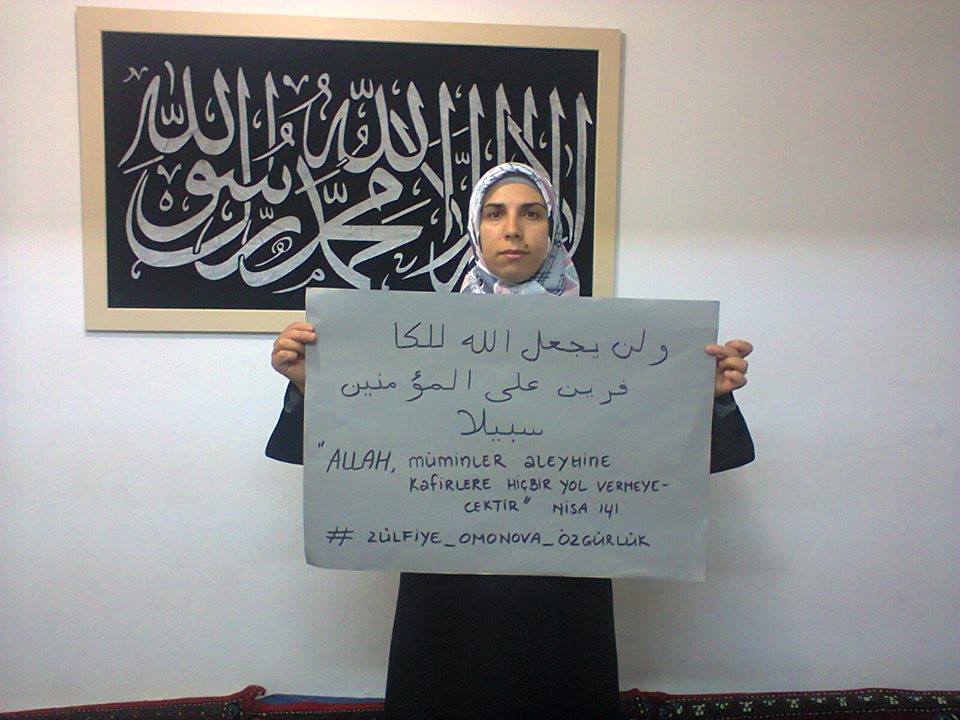 لا إله إلا الله محمد رسول الله
ولن يجعل الله للكا
فرين على المؤمنين
سبيلا
"ALLAH, müminler aleyhine
kafirlere hiçbir yol vermeye-
cektir" Nisa 141
# zülfiye_omonova_özgürlük